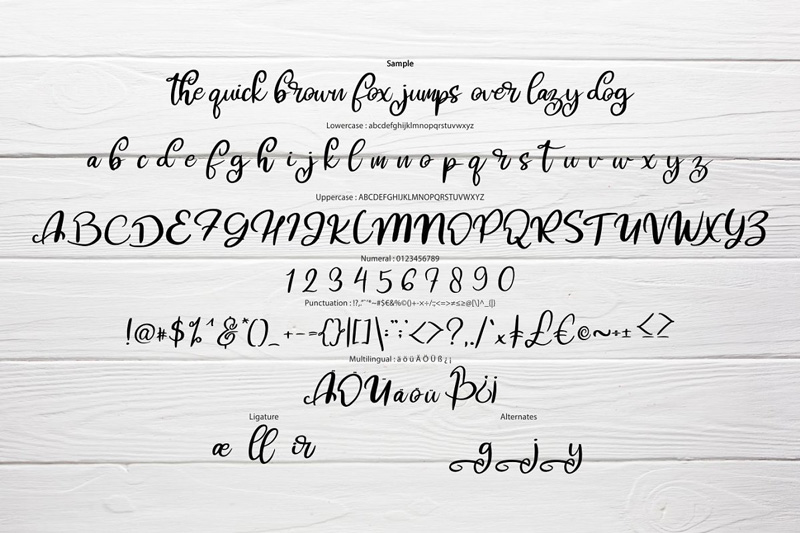 Sample
the quick brown fox jumps over lazy dog
Lowercase : abcdefghijklmnopqrstuvwxyz
a b c d e f g h i j k l m n o p q r s t u v w x y z
Uppercase : ABCDEFGHIJKLMNOPQRSTUVWXYZ
A B C D E F G H I J K L M N O P Q R S T U V W X Y Z
Numeral : 0123456789
1 2 3 4 5 6 7 8 9 0
Punctuation : !?,."“'*~#$€&%©()+-×÷/:;<=>≠≤≥@[\]^_{|}
!@#$%^&*()_+-={}|[]\:";'<>?,./`×‡£€©~÷±≤≥
Multilingual : ä ö ü Ä Ö Ü ß ¿ ¡
ÄÖÜäöüß¿¡
Ligature Alternates
æ ll ir g j y